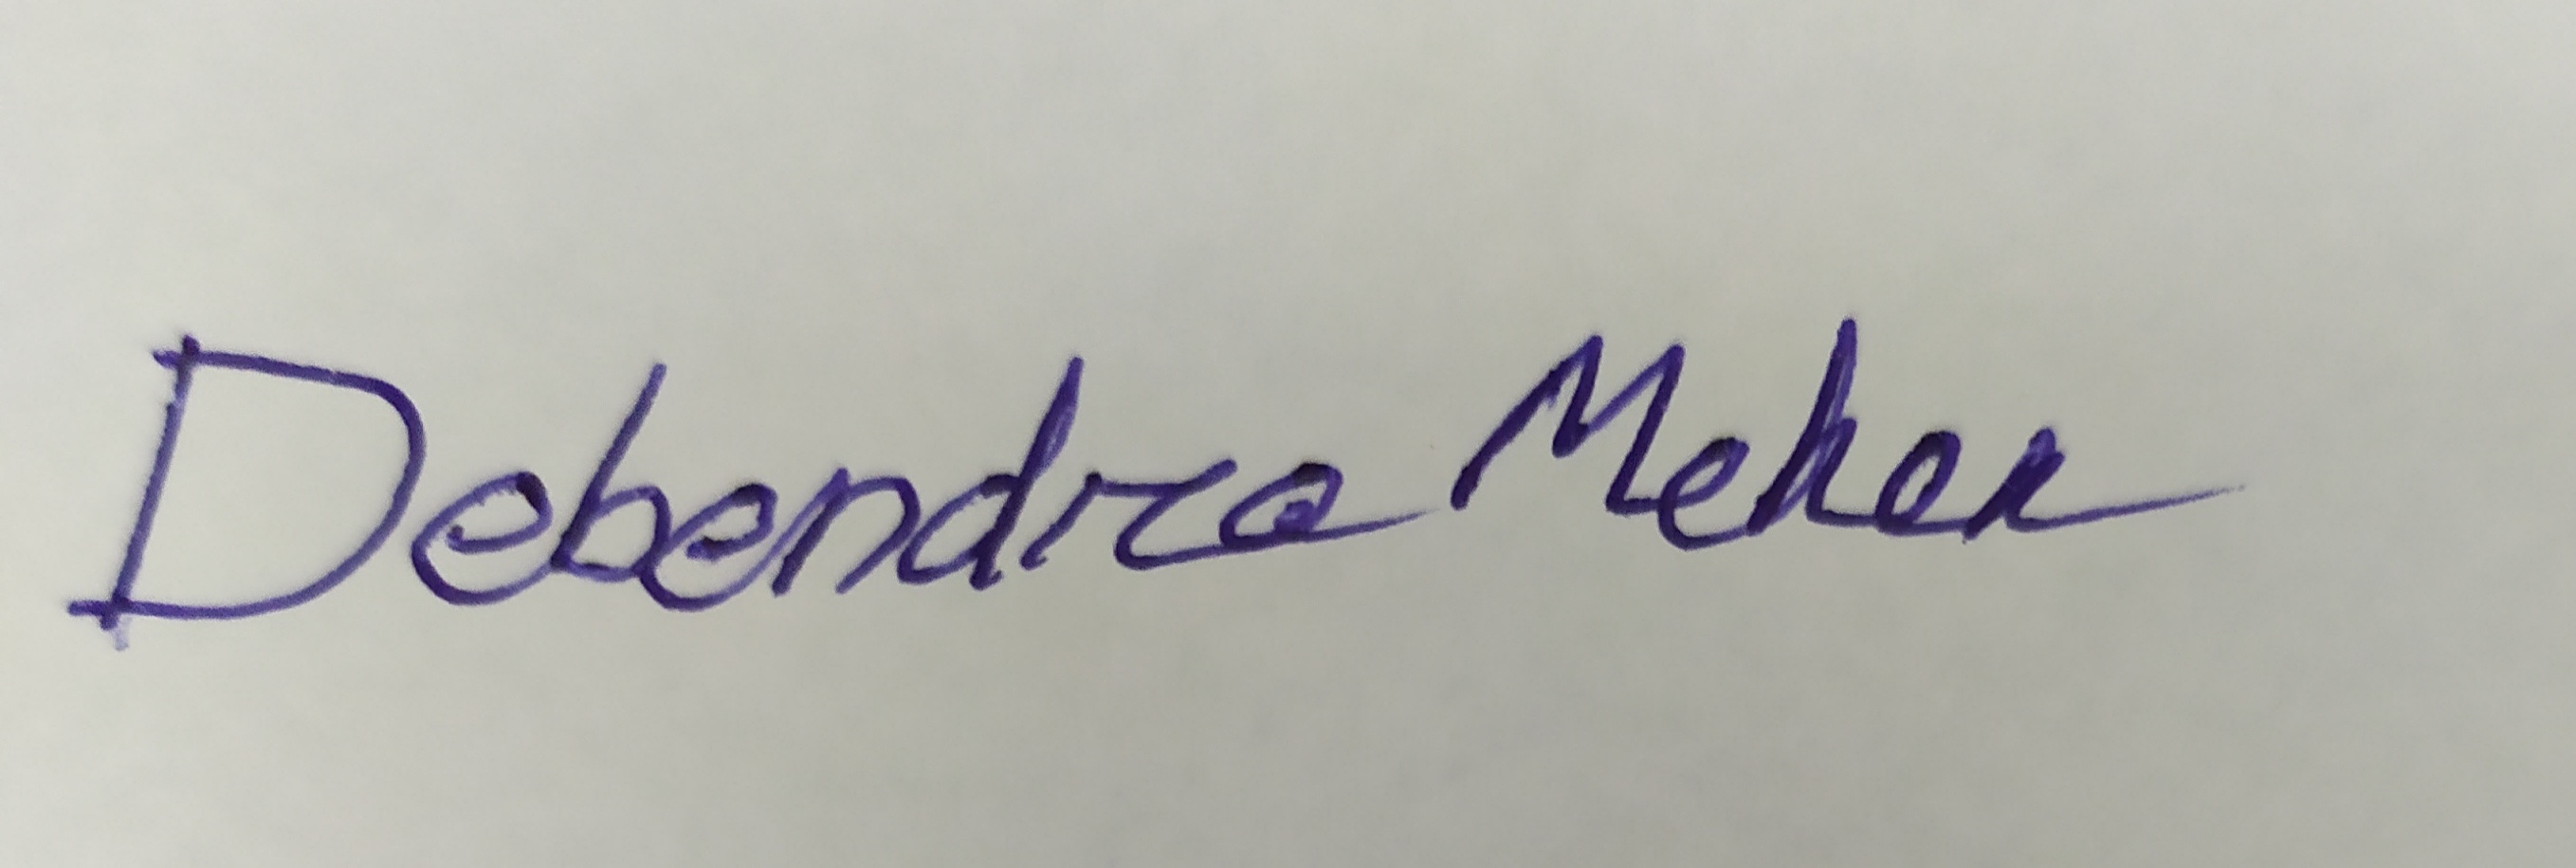 Debendra Meher